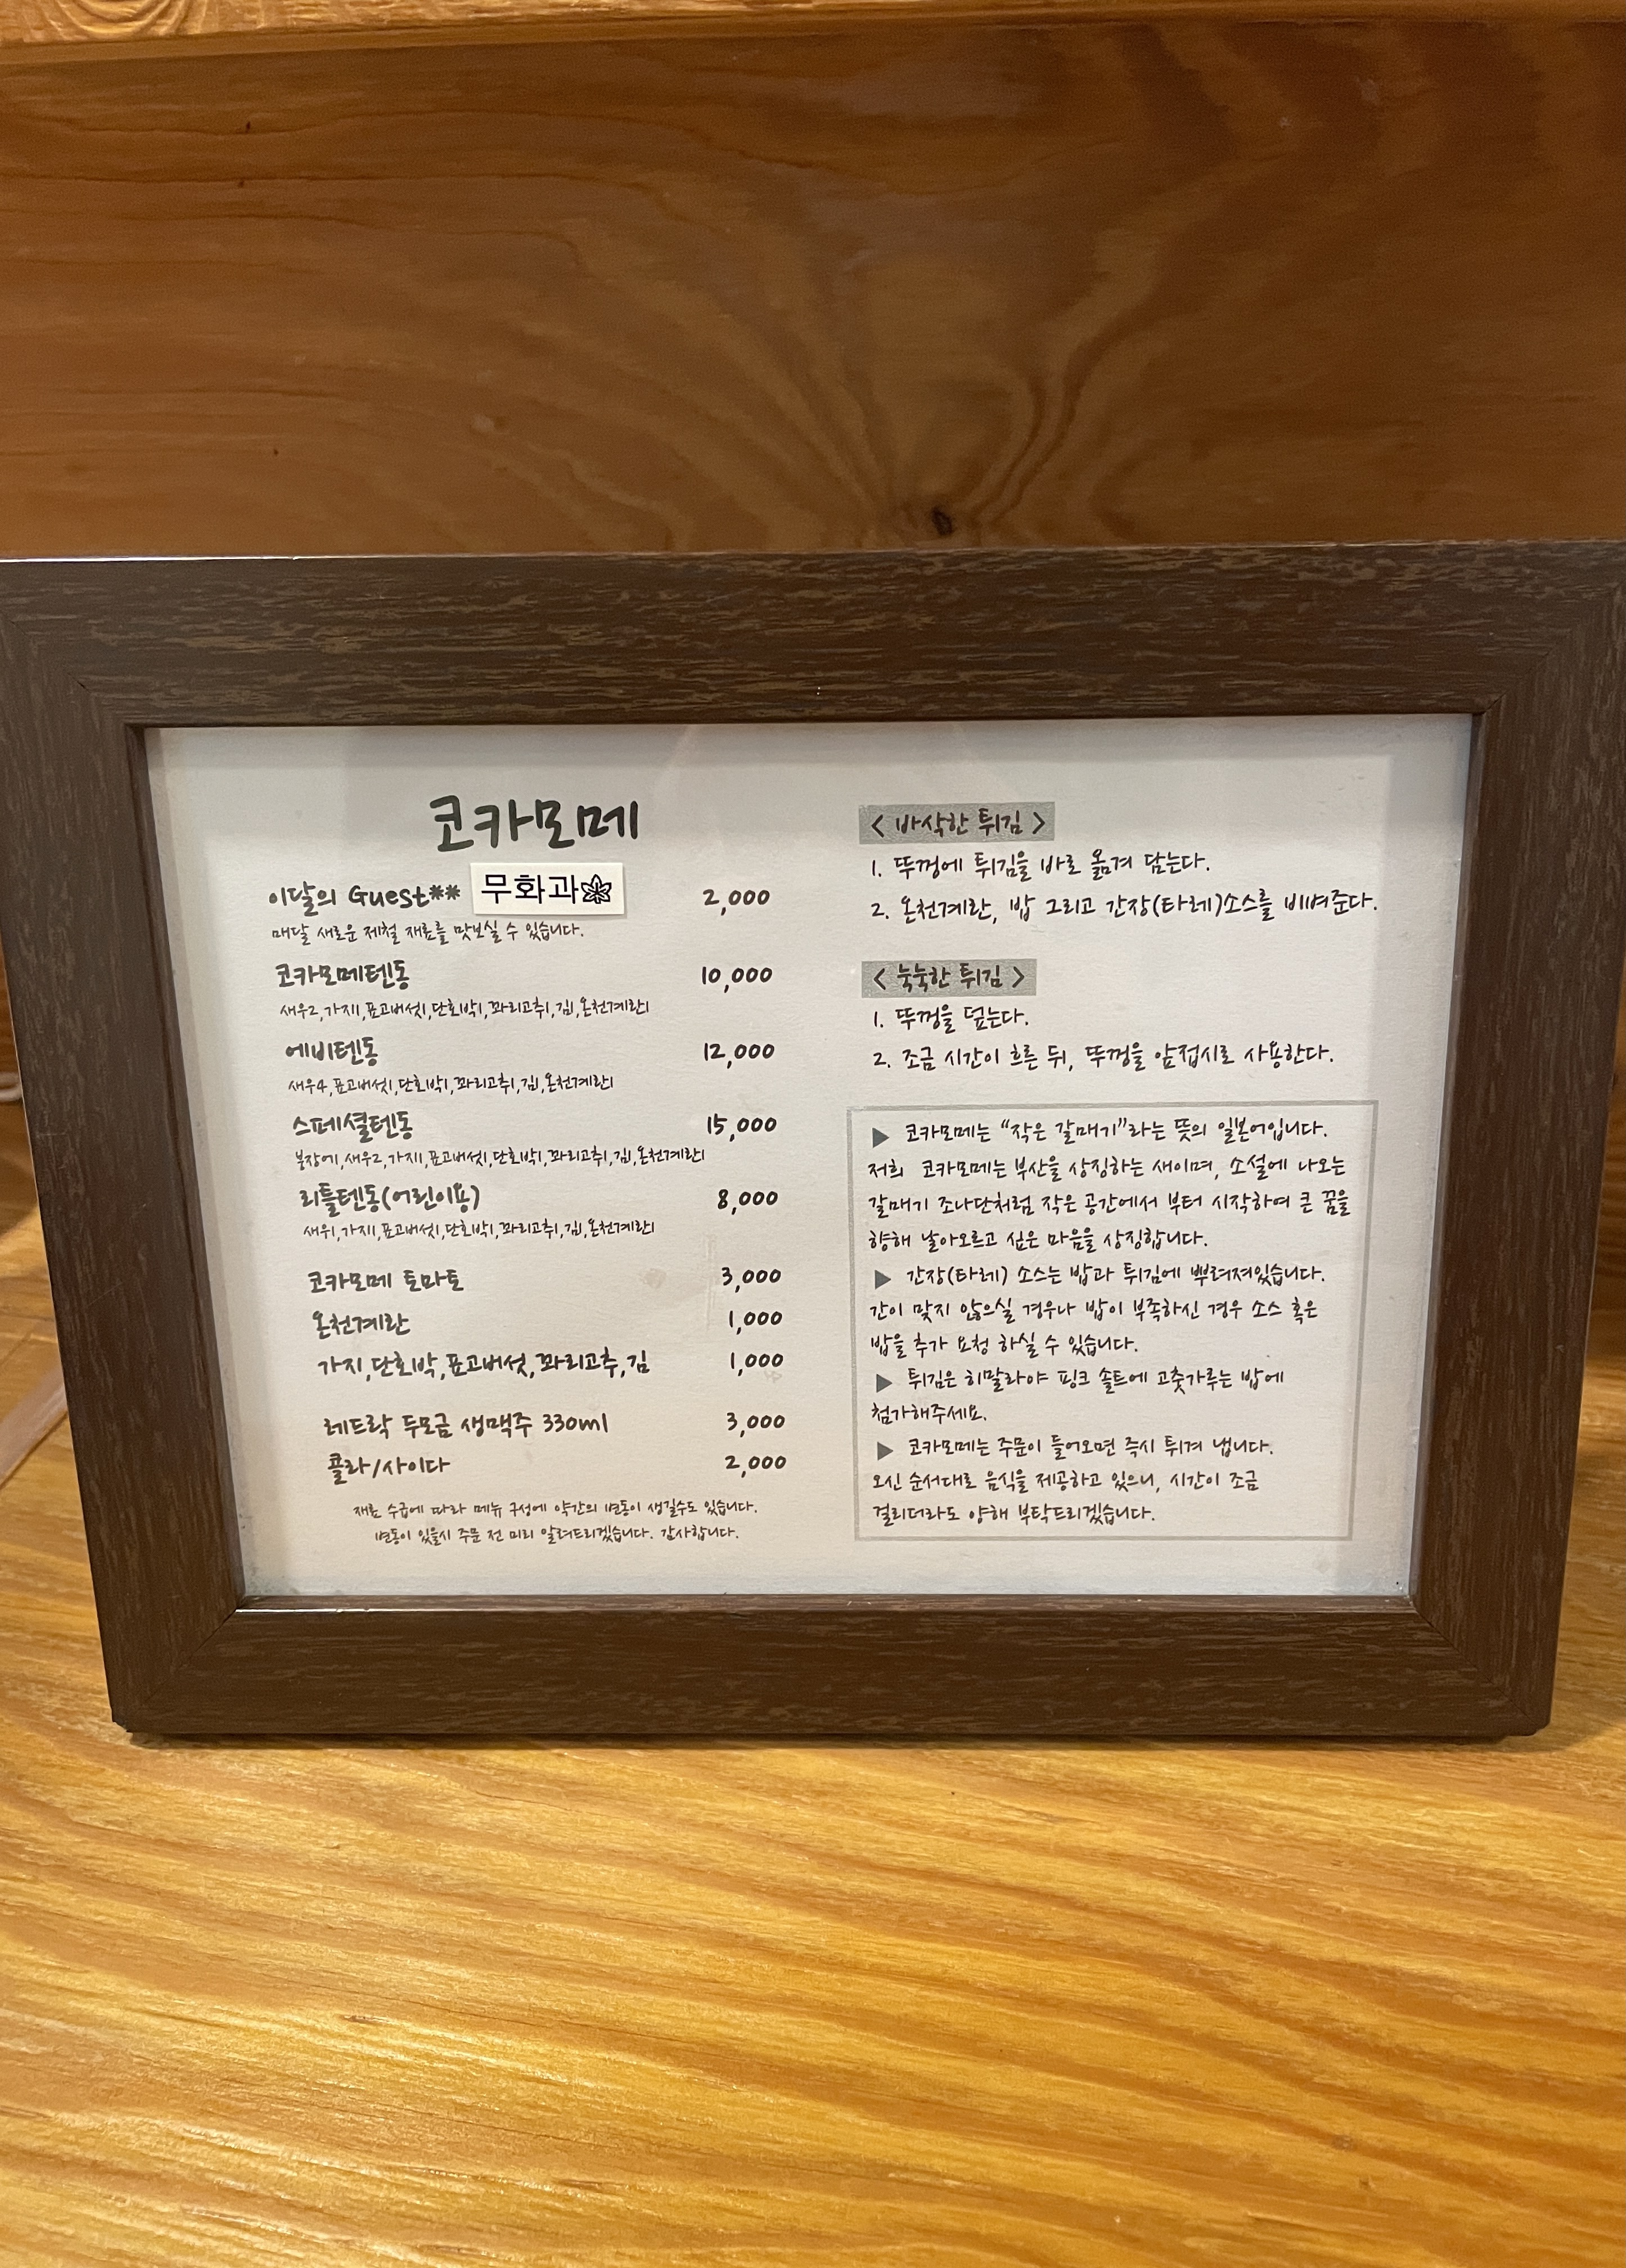 코카모메
이달의 Guest** 무화과 2,000
매달 새로운 제철 재료를 맛보실 수 있습니다.
코카모메텐동 10,000
새우2,가지1,표고버섯1,단호박1,꽈리고추1,김1,온천계란1
에비텐동 12,000
새우4,표고버섯1,단호박1,꽈리고추1,김1,온천계란1
스페셜텐동 15,000
붕장어1,새우2,가지1,표고버섯1,단호박1,꽈리고추1,김1,온천계란1
리틀텐동(어린이용) 8,000
새우1,가지1,표고버섯1,단호박1,꽈리고추1,김1,온천계란1
코카모메 토마토 3,000
온천계란 1,000
가지,단호박,표고버섯,꽈리고추,김 1,000
레드락 두모금 생맥주 330ml 3,000
콜라/사이다 2,000
재료 수급에 따라 메뉴 구성에 약간의 변동이 생길수도 있습니다.
변동이 있을시 주문 전 미리 알려드리겠습니다. 감사합니다.
< 바삭한 튀김 >
1. 뚜껑에 튀김을 바로 옮겨 담는다.
2. 온천계란, 밥 그리고 간장(타레)소스를 비벼준다.
< 눅눅한 튀김 >
1. 뚜껑을 덮는다.
2. 조금 시간이 흐른 뒤, 뚜껑을 앞접시로 사용한다.
▶ 코카모메는 "작은 갈매기"라는 뜻의 일본어입니다.
저희 코카모메는 부산을 상징하는 새이며, 소설에 나오는
갈매기 조나단처럼 작은 공간에서 부터 시작하여 큰 꿈을
향해 날아오르고 싶은 마음을 상징합니다.
▶ 간장(타레) 소스는 밥과 튀김에 뿌려져있습니다.
간이 맞지 않으실 경우나 밥이 부족하신 경우 소스 혹은
밥을 추가 요청 하실 수 있습니다.
▶ 튀김은 히말라야 핑크 솔트에 고춧가루는 밥에
첨가해주세요.
▶ 코카모메는 주문이 들어오면 즉시 튀겨 냅니다.
오신 순서대로 음식을 제공하고 있으니, 시간이 조금
걸리더라도 양해 부탁드리겠습니다.